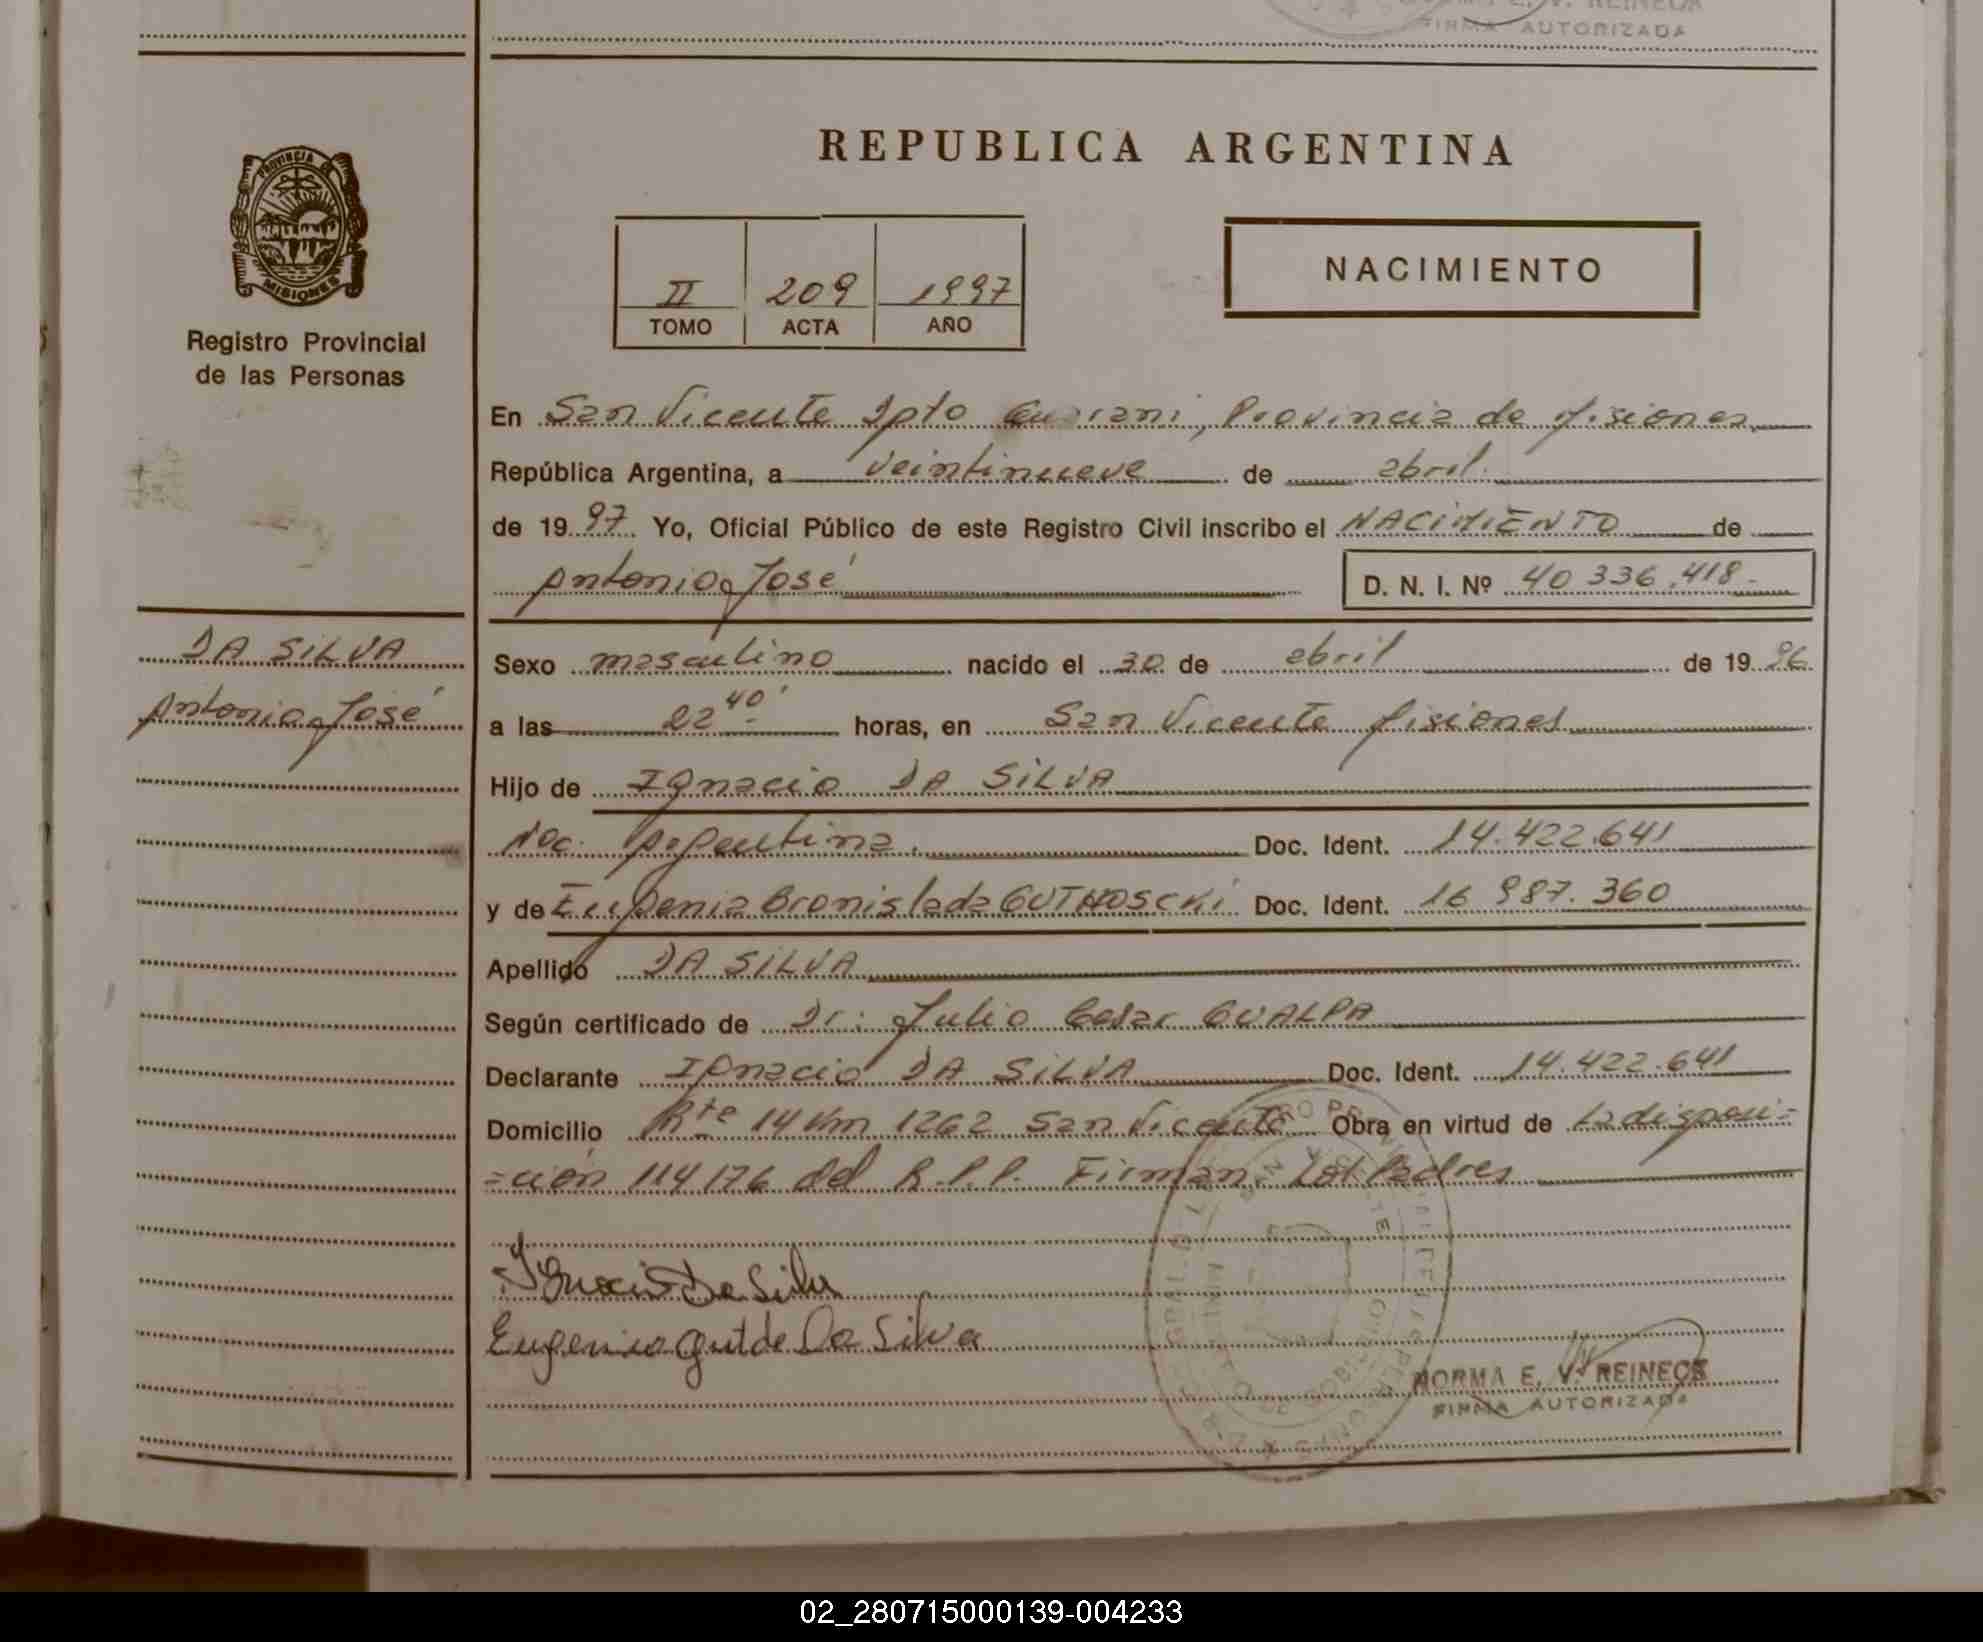 FIRMA AUTORIZADA
PROVINCIA DE
MISIONES
Registro Provincial
de las Personas
REPUBLICA ARGENTINA
II 209 1997
TOMO ACTA AÑO
NACIMIENTO
En San Vicente Dpto Guarani, Provincia de Misiones
República Argentina, a veintinueve de abril
de 1997 Yo, Oficial Público de este Registro Civil inscribo el NACIMIENTO de
Antonio José D. N. I. Nº 40 336.418-
DA SILVA
Antonio José
Sexo masculino nacido el 30 de abril de 1996
a las 22 40' horas, en San Vicente Misiones
Hijo de Ignacio DA SILVA
Nac. Argentina. Doc. Ident. 14.422.641
y de Eugenia Bronislada GUTHOSCKI Doc. Ident. 16 987.360
Apellido DA SILVA
Según certificado de Dr: Julio Cesar GUALPA
Declarante Ignacio DA SILVA Doc. Ident. 14.422.641
Domicilio Rte 14 Km 1262 San Vicente Obra en virtud de La disposi=
=ción 114176 del R.P.P. Firman Los Padres
Ignacio Da Silva
Eugenia Gut de Da Silva
NORMA E. V. REINECK
FIRMA AUTORIZADA
02_280715000139-004233